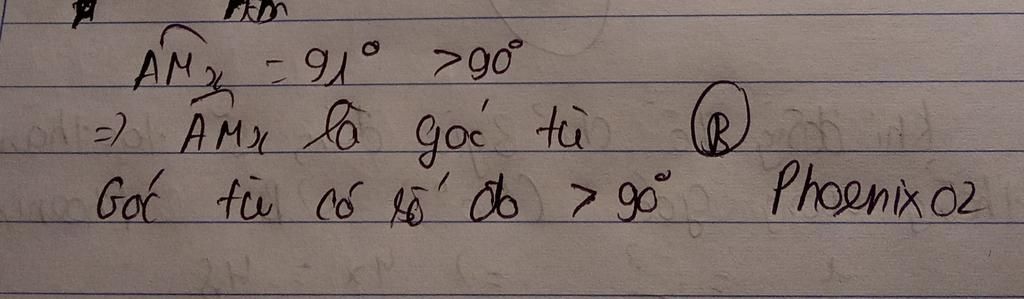 AMx = 91° > 90°
=> AMx là góc tù B
Góc tù có số đo > 90° Phoenix02